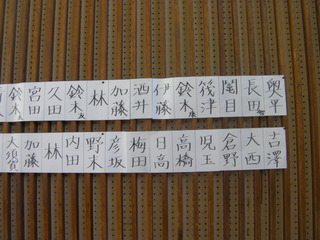 奥平 長田 閨目 筏津 鈴木 伊藤 酒井 加藤 林 鈴木 久田 宮田 鈴
吉澤 大西 倉野 児玉 高橋 日高 梅田 彦坂 野木 内田 林 加藤 大須賀